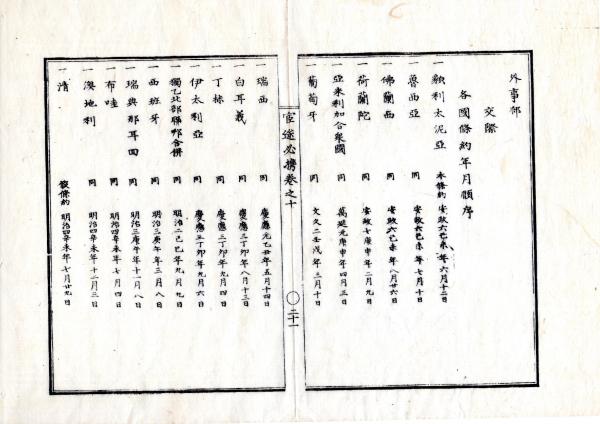 外事部
交際
各國條約年月順序
一 貌利太泥亞 本條約 安政六己未年六月十二日
一 魯西亞 同 安政六己未年七月十日
一 佛蘭西 同 安政六己未年八月廿六日
一 荷蘭陀 同 安政七庚申年二月九日
一 亞米利加合衆國 同 萬延元庚申年四月三日
一 葡萄牙 同 文久二壬戌年三月十日
官途必携卷之十
二十一
一 瑞西 同 慶應元乙丑年五月十四日
一 白耳義 同 慶應三丁卯年八月十三日
一 丁抹 同 慶應三丁卯年九月四日
一 伊太利亞 同 慶應三丁卯年九月六日
一 獨乙北部聯邦合併 同 明治二己巳年九月九日
一 西班牙 同 明治三庚午年三月八日
一 瑞典那耳回 同 明治三庚午年十一月八日
一 布哇 同 明治四辛未年七月四日
一 澳地利 同 明治四辛未年十二月三日
一 清 假條約 明治四辛未年七月廿九日